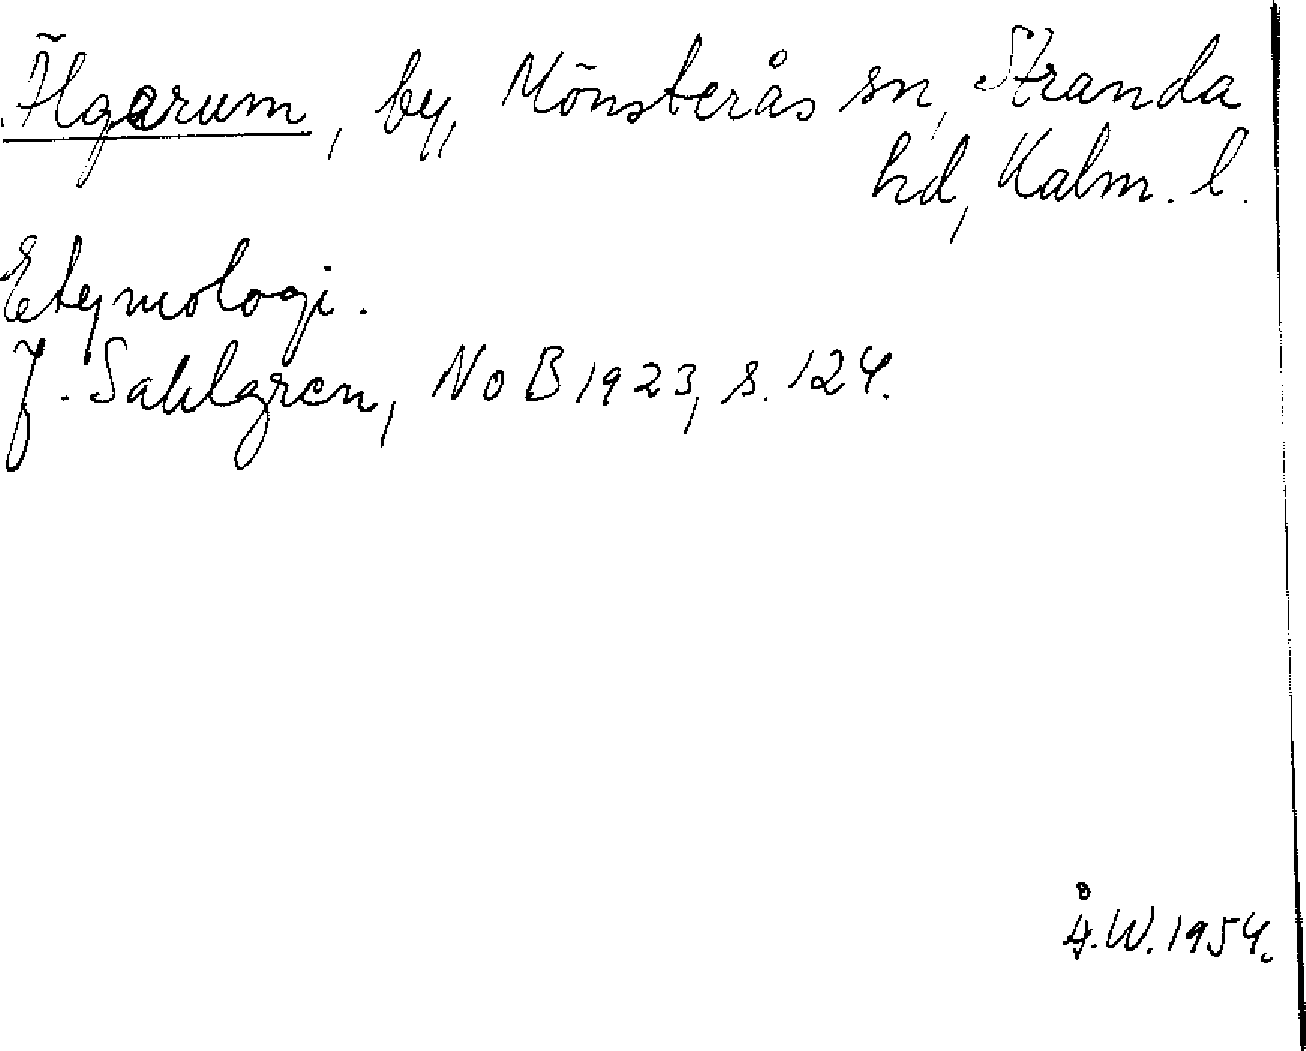 Älgerum, by, Mönsterås sn, Stranda
hd, Kalm. l.
Etymologi.
J. Sahlgren, NoB 1923, s. 124.
Å.W. 1954.